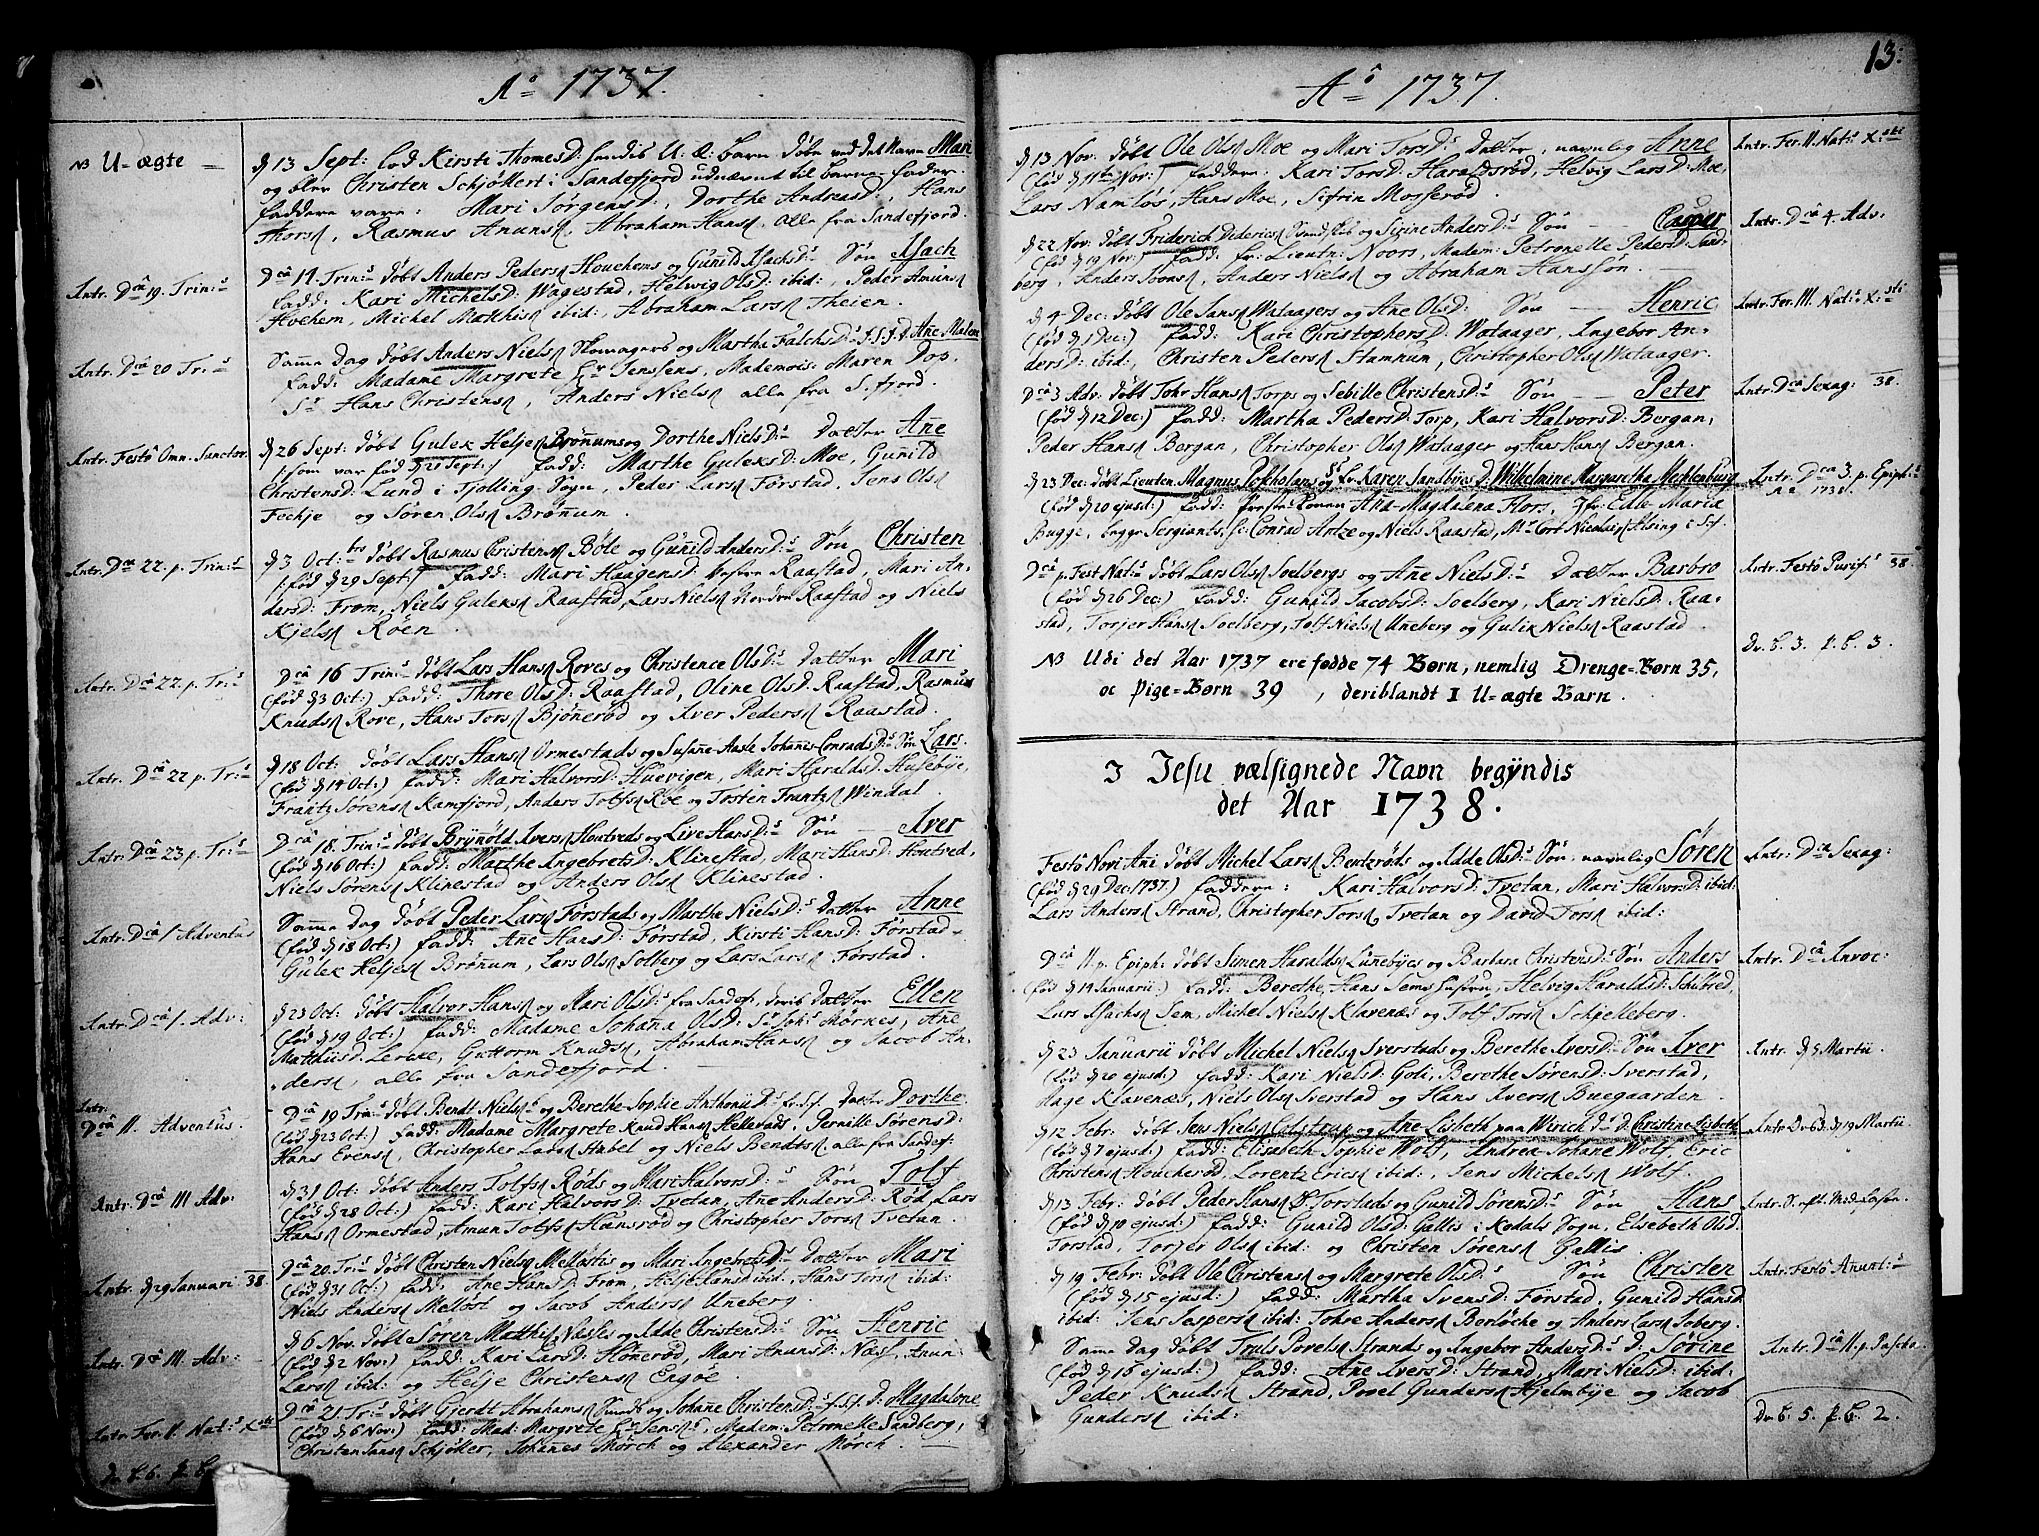 Aº 1737.
NB U-ægte
d 13 Sept: lod Kirsti ThomesD: hendis U: æ: barn døbe ved det navn Mari
og blev Christen Schjøllert i Sandefjord udnævnt til barne-fader.
faddere vare: Mari JørgensD:, Dorthe AndreasD:, Hans
Thors, Rasmus Anuns, Abraham Hans, alle fra Sandefjord.
Intr. Dca 19. Trin:s
Dca 14. Trin:s døbt Anders Peders Houchems og Gunild IsachsD:s Søn Isach
fadd: Kari MichelsD: Wagestad, Helwig OlsD: ibid:, Peder Amuns
Hochem, Michel Matthis ibid:, Abraham Lars Theien.
Intr. Dca 20 Tr:s
Samme Dag døbt Anders Niels Skomagers og Martha FalchsD:s Ane Malene
fadd: Madame Margrete Jenssens, Mademois: Maren Dop,
Sr Hans Christens, Anders Niels alle fra S.fjord.
Intr. Festô Omn. Sanctor.
d 26 Sept: døbt Gulek Helje Brønnums og Dorthe NielsD:s Datter Ane
/:som var fød d 21 Sept:/ fadd: Marthe GuleksD: Moe, Gunild
ChristensD: Lund i Tjølling Sogn, Peder Lars Førstad, Jens Ols
Feckje og Søren Ols Brønnum.
Intr. Dca 22. p. Trin:s
d 3 Oct:bris døbt Rasmus Christens Bøle og Gunild AndersD:s Søn Christen
/:fød d 29 Sept:/ fadd: Mari HaagensD: Raastad, Mari An-
dersD: From, Niels Guleks Raastad, Lars Niels Raastad og Niels
Kjels Røen.
Intr. Dca 22. p. Tr:s
Dca 16 Trin:s døbt Lars Hans Roves og Christence OlsD:s Datter Mari
(fød d 3 Oct:) fadd: Thore OlsD: Raastad, Oline OlsD: Raastad, Rasmus
Knuds Rove, Hans Tors Bjønerød og Iver Peders Raastad.
Intr. Dca 22 p. Tr:s
d 18 Oct: døbt Lars Hans Ormestads og Susanne Aasle Johannes ConradsD:s Søn Lars.
(fød d 14 Oct:) fadd: Mari HalvorsD: Huevigen, Mari HaraldsD: Husebye,
Frantz Sørens Kamfjord, Anders Tolfs Røe og Torsten Frantz Windal.
Intr. Dca 23 p. Tr:s
Dca 18. Trin:s døbt Brynnold Ivers Houtveds og Live HansD:s Søn Iver
(fød d 16 Oct:) fadd: Marthe IngebretsD: Klinestad, Mari HansD: Houtved,
Niels Sørens Klinestad og Anders Ols Klinestad.
Intr. Dca 1 Adventus
Samme Dag døbt Peder Lars Førstads og Marthe NielsD:s Datter Anne
(fød d 18 Oct:) fadd: Ane HansD: Førstad, Kirsti HansD: Førstad
Gulek Heljes Brønum, Lars Ols Solberg og Lars Lars Førstad.
Intr. Dca 1. Adv:
d 23 Oct: døbt Halvor Hans og Mari OlsD:s fra Sandef: deris Datter Ellen
(fød d 19 Oct:) fadd: Madame Johana OlsD: Sr Joh: Mørnes, Ane
MatthisD: Lercke, Guttorm Knuds, Abraham Hans og Jacob An-
ders, alle fra Sandefjord.
Intr.
Dca II. Adventus.
Dca 19 Trin:s døbt Bendt Niels og Berethe-Sophie AnthoniiD:s fr. S.f. Datter Dorthe.
(fød d 23 Oct:) fadd: Madame Margrete Knud Hans Hellevads, Pernille SørensD:
Hans Evens, Christopher Lars Hubel og Niels Bendts, alle fra Sandef:
Intr. Dca III Adv:
d 31 Oct: døbt Anders Tolfs Røds og Mari HalvorsD:s Søn Tolf
(fød d 28 Oct:) fadd: Kari HalvorsD: Tvetan, Ane AndersD: Rød, Lars
Hans Ormestad, Amun Tolfs Hansrød og Christopher Tors Tvetan.
Intr. d 29 Januarii 38.
Dca 20. Tr:s døbt Christen Niels Melløstis og Mari IngebretsD:s Datter Mari
(fød d 31 Oct:) fadd: Ane HansD: From, Hilje HansD ibid:, Hans Tors ibid:
Niels Anders Melløst og Jacob Anders Unneberg.
Intr. Dca III. Adv:
d 6 Nov. døbt Søren Matthis Næsses og Idde ChristensD:s Søn Henric
(fød d 2 Nov:) fadd: Kari LarsD: Hønerød, Mari AnunsD: Næss, Anun
Lars ibid: og Helje Christens Engøe.
Intr. Fer. II. Nat:s X:sti
Dca 21. Tr:s døbt Gierdt Abrahams Smidt og Johane ChristensD:s f. S.f. D: Magdalone
(fød d 6 Nov:) fadd: Mad: Margrete Jens:s, Madem: Petronelle Sandberg,
Christen Jans Schjøller, Johanes Mørch og Alexander Mørch.
Dr. b. 6. P. b.
Aº 1737.
13.
d 13 Nov: døbt Ole Ols Moe og Mari TorsD:s Datter, navnlig Anne
(fød d 11te Nov:) faddere: Kari TorsD: Haraldsrød, Helvig LarsD: Moe,
Lars Namløs, Hans Moe, Sifrin Mosserød.
Intr. Fer. II. Nat:s X:sti
d 22 Nov: døbt Friderich Diderics og Sirine AndersD:s Søn Casper
(fød d 19 Nov:) fadd: fr. Lieutn: Noors, Madem: Petronelle PedersD: Sand-
berg, Anders Ibons, Anders Niels og Abraham Hanssøn.
Intr. Dca 4. Adv.
d 4 Dec: døbt Ole Jans Wataagers og Ane OlsD: Søn Henric
(fød d 1 Dec:) fadd: Kari ChristophersD: Wataager, Ingebor An-
dersD: ibid: Christen Peders Stamnum, Christopher Ols Wataager.
Intr. Fer. III. Nat:s X:sti
Dca 3 Adv. døbt Tohr Hans Torps og Sebille ChristensD:s Søn Peter
(fød d 12 Dec:) fadd: Martha PedersD: Torp, Kari HalvorsD: Bergan,
Peder Hans Bergan, Christopher Ols Wataager og Hans Hans Bergan.
Intr. Dca Sexag: 38.
d 23 Dec: døbt Lieuten. Magnus og fr. Karen SandbyesD: Wilhelmine Margaretha Mechlenburg
(fød d 20 ejusd:) fadd: Ana-Magdalena Flors, Jfr: Edle Maria
Bugge, Sergiants, Sr: Conrad Antze og Niels Raastad, Mr Cort Nicolai Alsing i S.f.
Intr. Dca 3. p. Epiph:
Aº 1738.
Dca p. Fest Nat:s døbt Lars Ols Soelbergs og Ane NielsD:s Datter Barbro
(fød d 26 Dec:) fadd: Gunild JacobsD: Soelberg, Kari NielsD: Raa-
stad, Torjer Hans Soelberg, Tolf Niels Unneberg og Gulik Niels Raastad.
Intr. Festô Purif:s 38
Dr. b. 3. P. b. 3.
NB Udi det Aar 1737 ere fødde 74 Børn, nemlig Drenge-Børn 35,
oc Pige-Børn 39, deriblandt 1 U-ægte Barn.
I Jesu vælsignede Navn begyndis
det Aar 1738.
Festô Novi Ani døbt Michel Lars Bentzrøds og Idde OlsD:s Søn, navnlig Søren
(fød d 29 Dec: 1737.) faddere: Kari HalvorsD: Tvetan, Mari HalvorsD: ibid:
Lars Anders Strand, Christopher Tors Tvetan og David Tors ibid:
Intr: Dca Sexag:
Dca II. p. Epiph: døbt Simen Haralds Lunnebyes og Barbara ChristensD: Søn Anders
(fød d 14 Januarii) fadd: Berethe, Hans Sems hustru, Helvig HaraldsD: Schibred,
Lars Isachs Sem, Michel Niels Klavenæs og Tolf Tors Schjelleberg.
Intr. Dca Invoc:
d 23 Januarii døbt Michel Niels Iverstads og Berethe IversD: Søn Iver
(fød d 20 ejusd:) fadd: Kari NielsD: Goli, Berethe SørensD: Sverstad,
Aage Klavenæs, Niels Ols Sverstad og Hans Ivers Buegaarden.
Intr. d 5 Martii.
d 12 Febr: døbt Jens Niels Colstrup og Ane-Lisbeth von Wirich D:s D: Christine Lisbeth
(fød d 7 ejusd:) fadd: Elisabeth-Sophie Wolf, Andrea-Johane Wolf, Eric
Christens Houcherød, Lorentz Erics ibid:, Jens Michels Wolf.
Intr. d 19 Martii
d 13 Febr: døbt Peder Hans Ø. Torstads og Gunild SørensD:s Søn Hans
(fød d 10 ejusd:) fadd: Gunild OlsD: Gallis i Kodals Sogn, Elsebeth OlsD:
Torstad, Torjer Ols ibid: og Christen Sørens Gallis.
Intr. S. oft. Midfasten.
d 19 Febr: døbt Ole Christens og Margrete OlsD:s Søn Christen
(fød d 15 ejusd:) fadd: Martha SvensD: Førstad, Gunild HansD.
ibid: Jens Jespers ibid: Tohre Anders Berløche og Anders Lars Soberg.
Intr: Festô Anunt:s
Samme Dag døbt Truls Povels Strands og Ingebor AndersD:s D. Sørine
(fød d 16 ejusd:) fadd: Ane IversD: Strand, Mari NielsD: ibid:
Peder Knuds Strand, Povel Gunders Hjelmbye og Jacob
Gunders ibid:
Intr. Dca II. p. Pascha.
Dr. b. 5. P. b. 2.